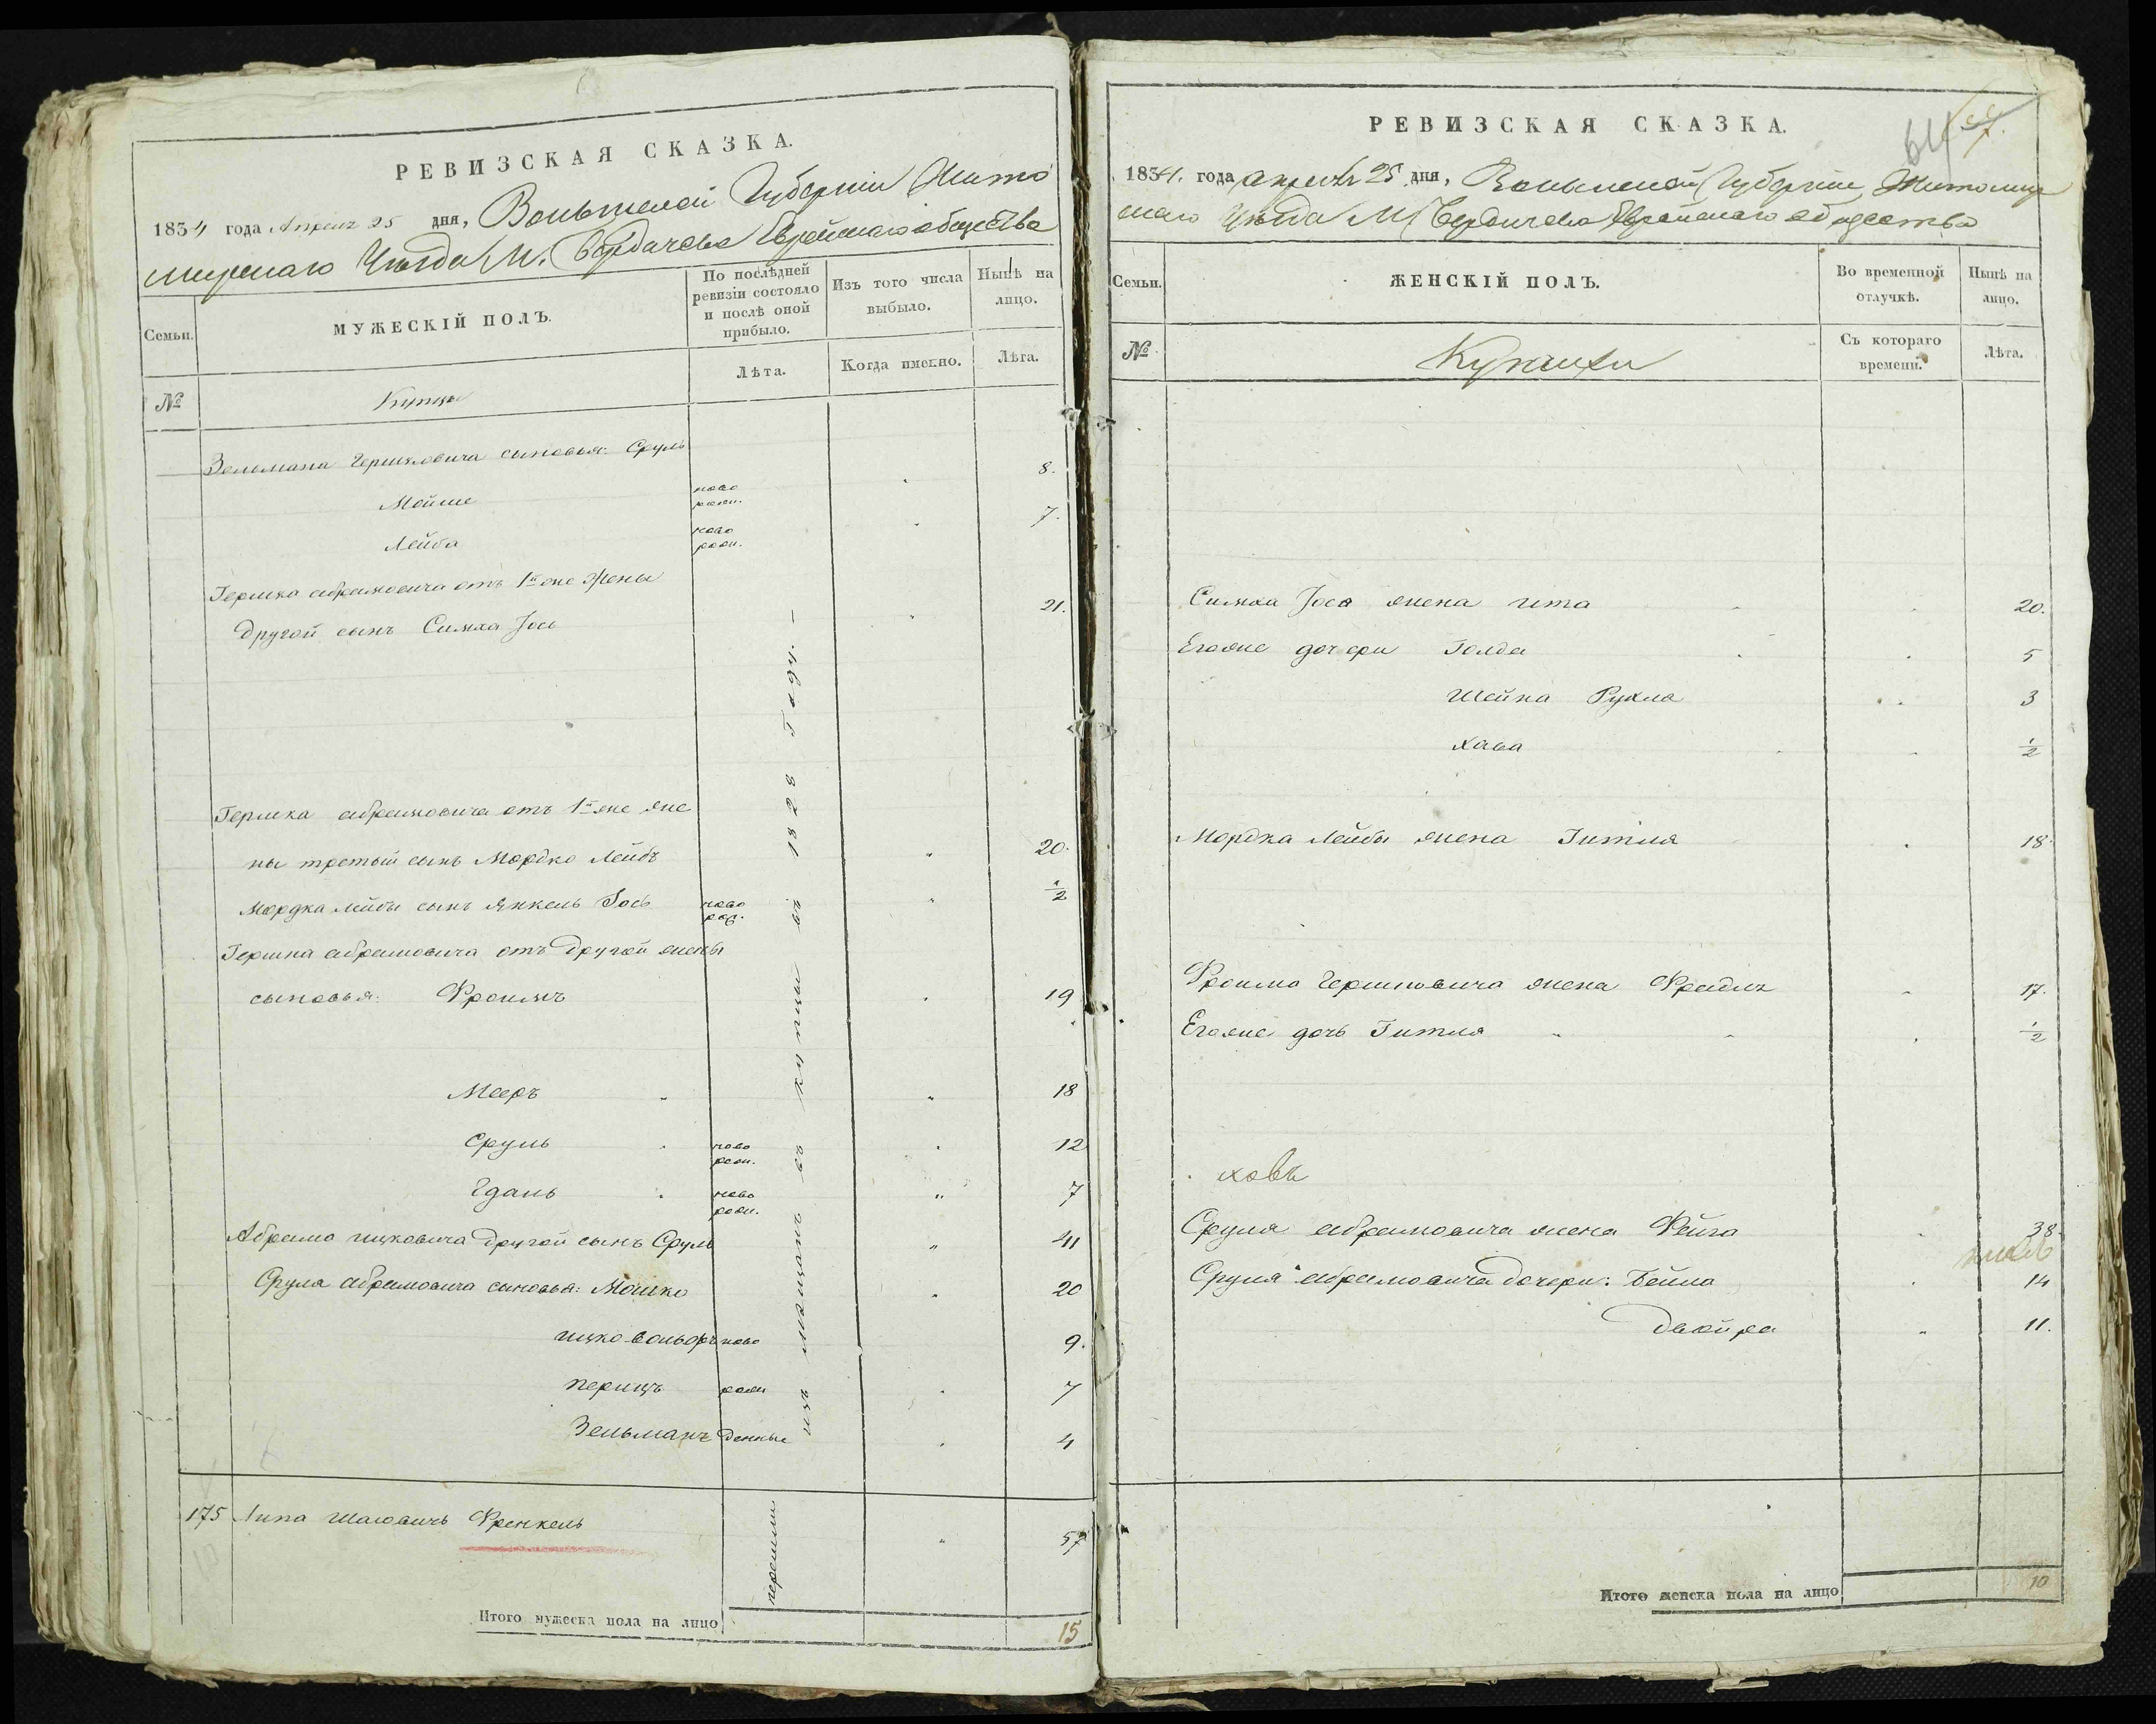 РЕВИЗСКАЯ СКАЗКА.
1834 года Апреля 25 дня, Волынской Губерніи Жито
мирскаго Уѣзда М. Бердичева Еврейскаго общества
Семьи.
МУЖЕСКІЙ ПОЛЪ.
По послѣдней ревизіи состояло и послѣ оной прибыло.
Изъ того числа выбыло.
Нынѣ на лицо.
Лѣта.
Когда именно.
Лѣта.
№
Купцы
Зельмана Гершковича сыновья: Сруль 8.
Мойше ново рожд. 7.
Лейба ново рожд.
Гершка Абрамовича отъ 1й же жены
другой сынъ Симха Іось 21.
Гершка Абрамовича отъ 1й же же
ны третый сынъ Мордко Лейбъ 20.
Мордка Лейбы сынъ Янкель Іось ново рож. ½
Гершка Абрамовича отъ другой жены
сыновья: Фроимъ 19
Мееръ 18
Сруль ново рожд. 12
Гдаль ново рожд. 7
Абрама Ицковича другой сынъ Сруль 41
Сруля Абрамовича сыновья: Мошко 20
Ицко Вольфъ ново 9.
Перицъ рож 7
Зельманъ денные 4
изъ мѣщанъ въ купцы въ 1828 году. —
175 Липа Шаювичъ Френкель 57
перешли
Итого мужеска пола на лицо 15
РЕВИЗСКАЯ СКАЗКА.
64
1834. года апреля 25 дня, Волынской Губерніи, Житомир
скаго Уѣзда М. Бердичева Еврейскаго общества
Семьи.
ЖЕНСКІЙ ПОЛЪ.
Во временной отлучкѣ.
Нынѣ на лицо.
№
Купчихи
Съ котораго времени.
Лѣта.
Симха Іося жена Ита 20.
Егоже дочери Голда 5
Шейна Рухля 3
Хава ½
Мордка Лейбы жена Гитля 18
Фроима Гершковича жена Фрейдля 17.
Егоже дочь Гитля ½
Сруля Абрамовича жена Фейга 38.
Сруля Абрамовича дочери: Бейла 14
Двойра 11.
Итого женска пола на лицо 10